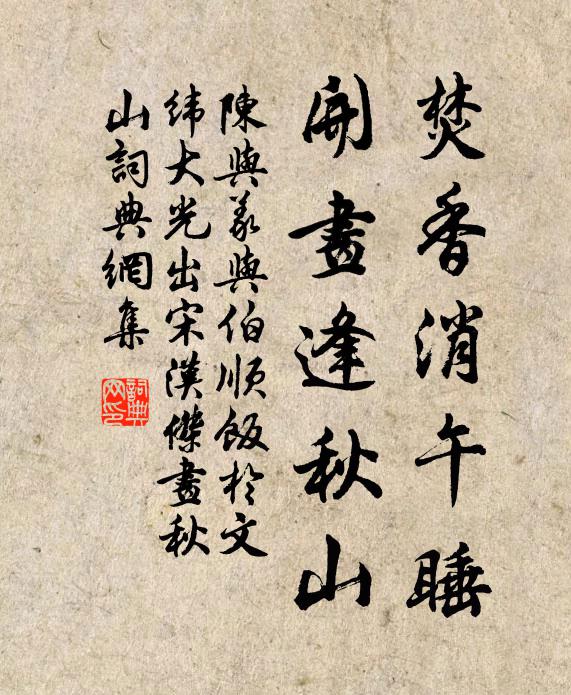 焚香消午睡
開畫逢秋山
陳與義與伯順飯於文
緯大光出宋漢傑畫秋
山詞典網集
詞典网印